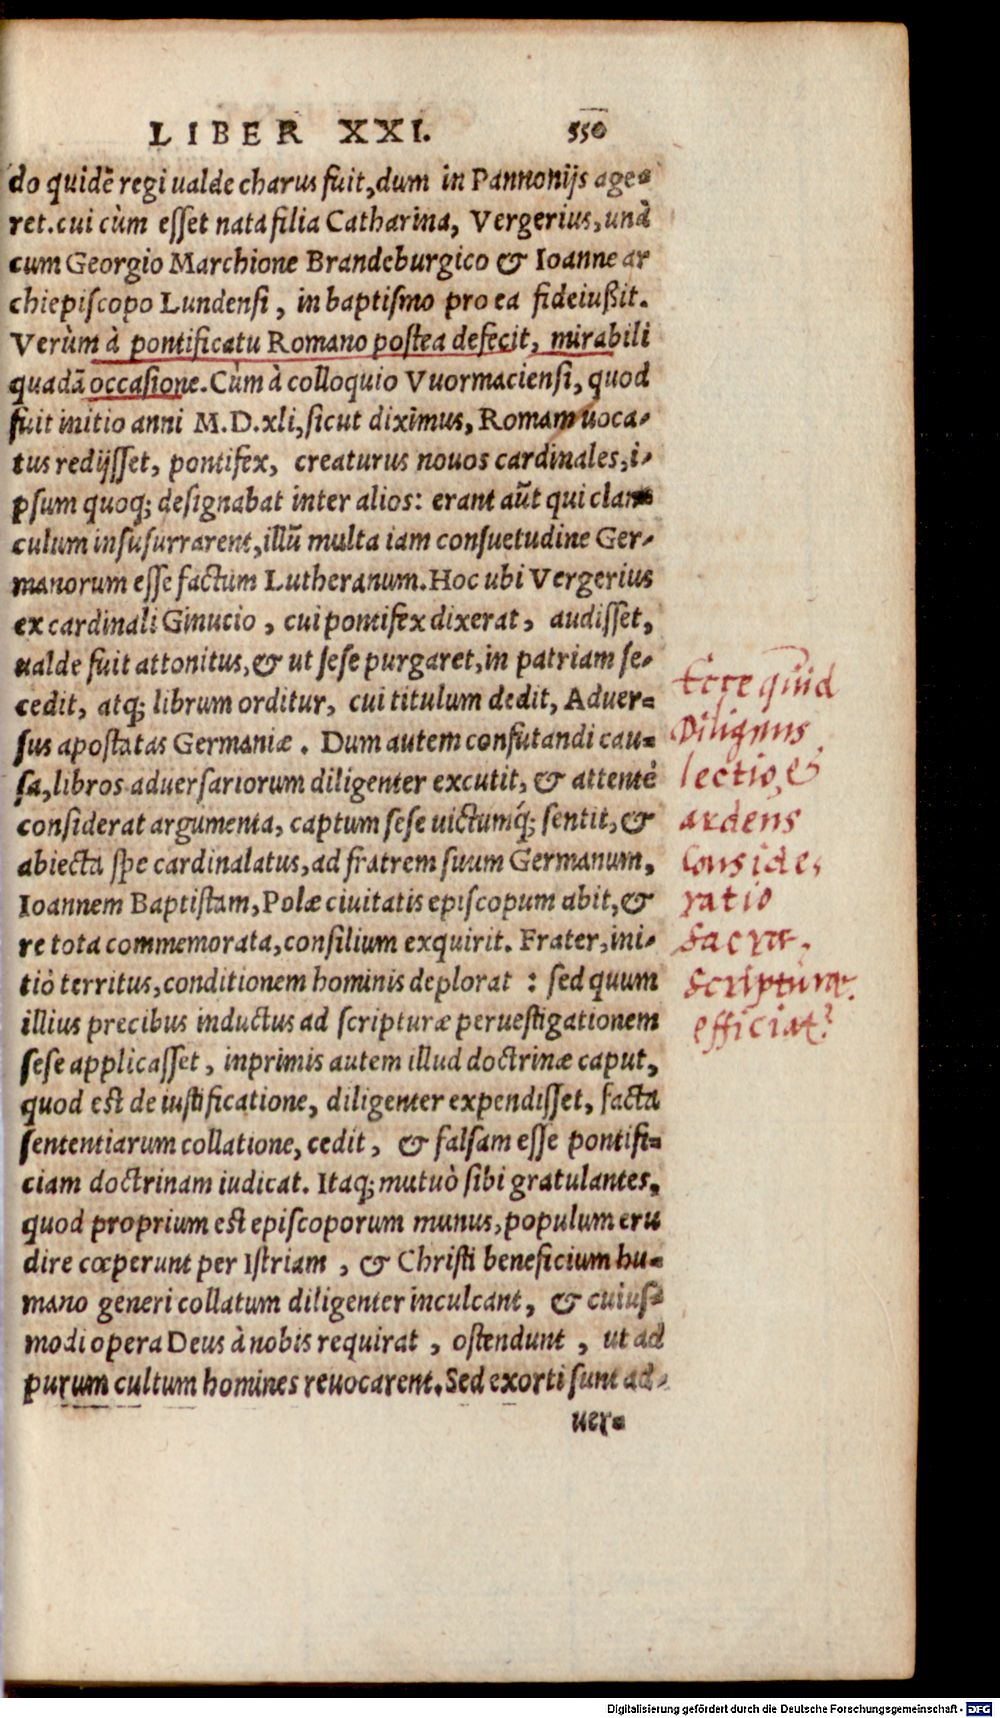 LIBER XXI. 550
do quidē regi ualde charus fuit, dum in Pannonijs age-
ret. cui cùm esset nata filia Catharina, Vergerius, unà
cum Georgio Marchione Brandeburgico & Ioanne ar
chiepiscopo Lundensi, in baptismo pro ea fideiußit.
Verùm à pontificatu Romano postea defecit, mirabili
quadā occasione. Cùm à colloquio Vuormaciensi, quod
fuit initio anni M.D.xli, sicut diximus, Romam uoca-
tus redijsset, pontifex, creaturus nouos cardinales, i-
psum quoq; designabat inter alios: erant aūt qui clan-
culum insusurrarent, illū multa iam consuetudine Ger-
manorum esse factum Lutheranum. Hoc ubi Vergerius
ex cardinali Ginucio, cui pontifex dixerat, audisset,
ualde fuit attonitus, & ut sese purgaret, in patriam se-
cedit, atq; librum orditur, cui titulum dedit, Aduer-
sus apostatas Germaniæ. Dum autem confutandi cau-
sa, libros aduersariorum diligenter excutit, & attentè
considerat argumenta, captum sese uictumq́; sentit, &
abiecta spe cardinalatus, ad fratrem suum Germanum,
Ioannem Baptistam, Polæ ciuitatis episcopum abit, &
re tota commemorata, consilium exquirit. Frater, ini-
tiò territus, conditionem hominis deplorat : sed quum
illius precibus inductus ad scripturæ peruestigationem
sese applicasset, inprimis autem illud doctrinæ caput,
quod est de iustificatione, diligenter expendisset, facta
sententiarum collatione, cedit, & falsam esse pontifi-
ciam doctrinam iudicat. Itaq; mutuò sibi gratulantes,
quod proprium est episcoporum munus, populum eru
dire cœperunt per Istriam, & Christi beneficium hu-
mano generi collatum diligenter inculcant, & cuius-
modi opera Deus à nobis requirat, ostendunt, ut ad
purum cultum homines reuocarent. Sed exorti sunt ad-
uer-
Ecce quid
Diligens
lectio, &
ardens
Conside,
ratio
Sacræ,
Scripturæ.
efficiat?
Digitalisierung gefördert durch die Deutsche Forschungsgemeinschaft - DFG